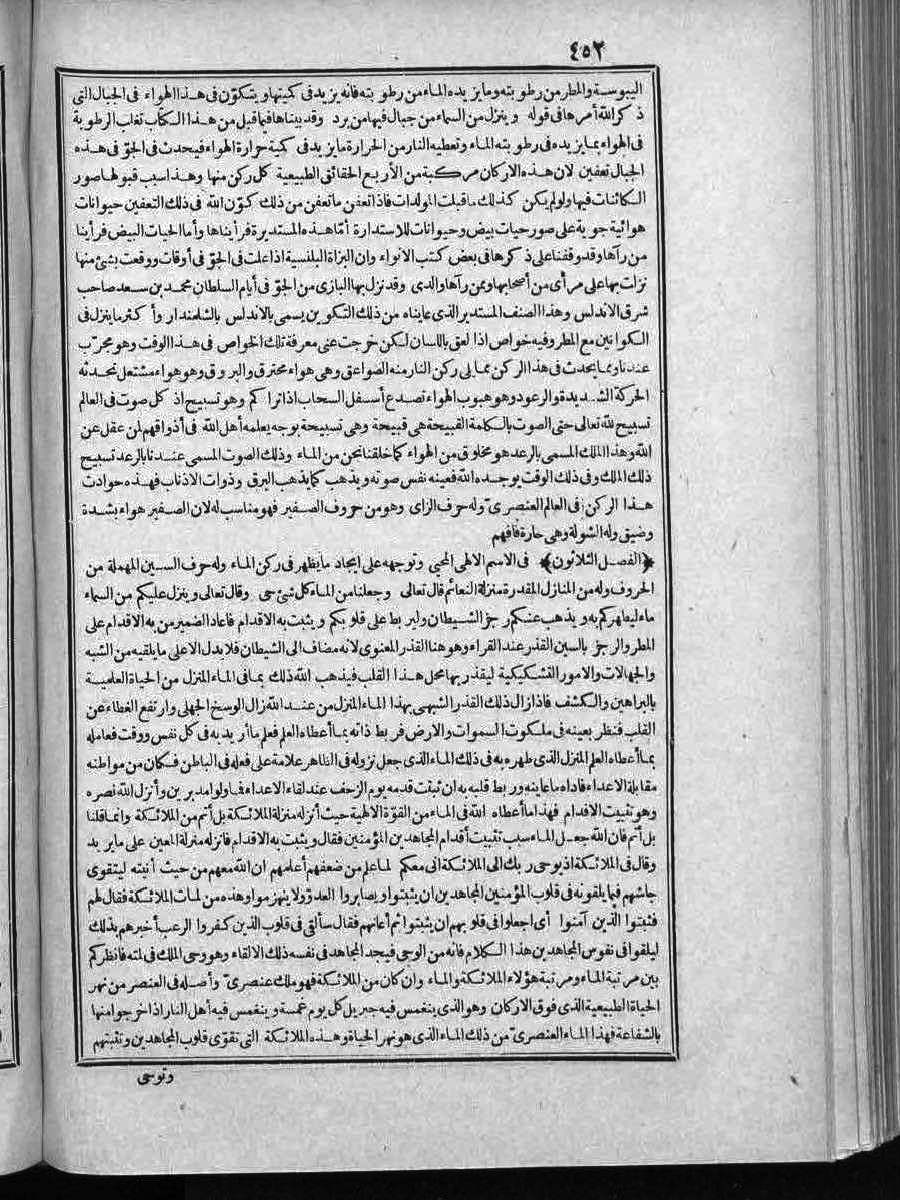 ٤٥٢
اليبوسة والمطر من رطوبته وما يزيده الماء من رطوبته فانه يزيد فى كميتها ويتكوّن فى هذا الهواء فى الجبال التى
ذكر الله أمرها فى قوله وينزل من السماء من جبال فيها من برد وقد بيناها فيما قبل من هذا الكتاب تغلب الرطوبة
فى الهواء بما يزيده فى رطوبته الماء وتعطيه النار من الحرارة ما يزيد فى كمية حرارة الهواء فيحدث فى الجوّ فى هذه
الجبال تعفين لان هذه الاركان مركبة من الأربع الحقائق الطبيعية كل ركن منها وهذا سبب قبولها صور
الكائنات فيها ولو لم يكن كذلك ما قبلت المولدات فاذا تعفن ما تعفن من ذلك كوّن الله فى ذلك التعفين حيوانات
هوائية جوية على صور حيات بيض وحيوانات للاستدارة أمّا هذه المستديرة فرأيناها وأما الحيات البيض فرأينا
من رآها وقد وقفنا على ذكرها فى بعض كتب الانواء وان البزاة البلنسية اذا علت فى الجوّ فى أوقات ووقعت بشئ منها
نزلت بها على مرأى من أصحابها وممن رآها والدى وقد نزل بها البازى من الجوّ فى أيام السلطان محمد بن سعد صاحب
شرق الاندلس وهذا الصنف المستدير الذى عايناه من ذلك التكوين يسمى بالاندلس بالشلمندار وأكثر ما ينزل فى
الكوانين مع المطر وفيه خواص اذا لعق باللسان لكن خرجت عنى معرفة تلك الخواص فى هذا الوقت وهو مجرّب
عندنا ومما يحدث فى هذا الركن مما يلى ركن النار منه الصواعق وهى هواء محترق والبروق وهو هواء مشتعل تحدثه
الحركة الشديدة والرعود وهو هبوب الهواء تصدع أسفل السحاب اذا تراكم وهو تسبيح اذ كل صوت فى العالم
تسبيح لله تعالى حتى الصوت بالكلمة القبيحة هى قبيحة وهى تسبيحة بوجه يعلمه أهل الله فى أذواقهم لمن عقل عن
الله وهذا الملك المسمى بالرعد هو مخلوق من الهواء كما خلقنا نحن من الماء وذلك الصوت المسمى عندنا بالرعد تسبيح
ذلك الملك وفى ذلك الوقت يوجده الله فعينه نفس صوته ويذهب كما يذهب البرق وذوات الاذناب فهذه حوادث
هذا الركن فى العالم العنصرىّ وله حرف الزاى وهو من حروف الصفير فهو مناسب له لان الصفير هواء بشدة
وضيق وله الشولة وهى حارة فافهم
﴿الفصل الثلاثون﴾ فى الاسم الالهى المحيى وتوجهه على ايجاد ما يظهر فى ركن الماء وله حرف السين المهملة من
الحروف وله من المنازل المقدرة منزلة النعائم قال تعالى وجعلنا من الماء كل شئ حى وقال تعالى وينزل عليكم من السماء
ماء ليطهركم به ويذهب عنكم رجز الشيطان وليربط على قلوبكم ويثبت به الاقدام فاعاد الضمير من به الاقدام على
المطر والرجز بالسين القذر عند القراء وهو هنا القذر المعنوى لانه مضاف الى الشيطان فلا يدل الا على ما يلقيه من الشبه
والجهالات والامور التشكيكية ليقذر بها محل هذا القلب فيذهب الله ذلك بما فى الماء المنزل من الحياة العلمية
بالبراهين والكشف فاذا زال ذلك القذر الشبهى بهذا الماء المنزل من عند الله زال الوسخ الجهلى وارتفع الغطاء عن
القلب فنظر بعينه فى ملكوت السموات والارض فربط ذاته بما أعطاه العلم فعلم ما أريد به فى كل نفس ووقت فعامله
بما أعطاه العلم المنزل الذى طهره به فى ذلك الماء الذى جعل نزوله فى الظاهر علامة على فعله فى الباطن فكان من مواطنه
مقابلة الاعداء فاداه ما عاينه وربط قلبه به ان ثبتت قدمه يوم الزحف عند لقاء الاعداء فما ولوا مدبرين وأنزل الله نصره
وهو تثبيت الاقدام فهذا ما أعطاه الله فى الماء من القوّة الالهية حيث أنزله منزلة الملائكة بل أتم من الملائكة وانما قلنا
بل أتم فان الله جعل الماء سبب تثبيت أقدام المجاهدين المؤمنين فقال ويثبت به الاقدام فانزله منزلة المعين على ما يريد
وقال فى الملائكة اذ يوحى ربك الى الملائكة انى معكم لما علم من ضعفهم أعلمهم ان الله معهم من حيث أنيته ليتقوى
جاشهم فيما يلقونه فى قلوب المؤمنين المجاهدين ان يثبتوا ويصابروا العدوّ ولا ينهزموا وهذه من لمات الملائكة فقال لهم
فثبتوا الذين آمنوا أى اجعلوا فى قلوبهم ان يثبتوا ثم أعانهم فقال سألقى فى قلوب الذين كفروا الرعب أخبرهم بذلك
ليلقوا فى نفوس المجاهدين هذا الكلام فانه من الوحى فيجد المجاهد فى نفسه ذلك الالقاء وهو وحى الملك فى لمته فانظر كم
بين مرتبة الماء ومرتبة هؤلاء الملائكة والماء وان كان من الملائكة فهو ملك عنصرىّ وأصله فى العنصر من نهر
الحياة الطبيعية الذى فوق الاركان وهو الذى ينغمس فيه جبريل كل يوم غمسة وينغمس فيه أهل النار اذا خرجوا منها
بالشفاعة فهذا الماء العنصرىّ من ذلك الماء الذى هو نهر الحياة وهذه الملائكة التى تقوّى قلوب المجاهدين وتثبتهم
وتوحى